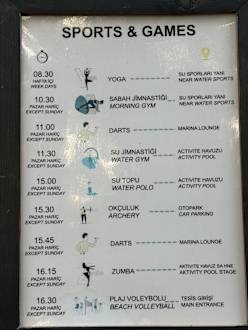 SPORTS & GAMES
08.30
HAFTA İÇİ
WEEK DAYS
YOGA
SU SPORLARI YANI
NEAR WATER SPORTS
10.30
PAZAR HARİÇ
EXCEPT SUNDAY
SABAH JİMNASTİĞİ
MORNING GYM
SU SPORLARI YANI
NEAR WATER SPORTS
11.00
PAZAR HARİÇ
EXCEPT SUNDAY
DARTS
MARINA LOUNGE
11.30
PAZAR HARİÇ
EXCEPT SUNDAY
SU JİMNASTİĞİ
WATER GYM
ACTIVITE HAVUZU
ACTIVITY POOL
15.00
PAZAR HARİÇ
EXCEPT SUNDAY
SU TOPU
WATER POLO
ACTIVITE HAVUZU
ACTIVITY POOL
15.30
PAZAR HARİÇ
EXCEPT SUNDAY
OKÇULUK
ARCHERY
OTOPARK
CAR PARKING
15.45
PAZAR HARİÇ
EXCEPT SUNDAY
DARTS
MARINA LOUNGE
16.15
PAZAR HARİÇ
EXCEPT SUNDAY
ZUMBA
ACTIVITY POOL STAGE
16.30
PAZAR HARİÇ
EXCEPT SUNDAY
PLAJ VOLEYBOLU
BEACH VOLLEYBALL
TESİS GİRİŞİ
MAIN ENTRANCE